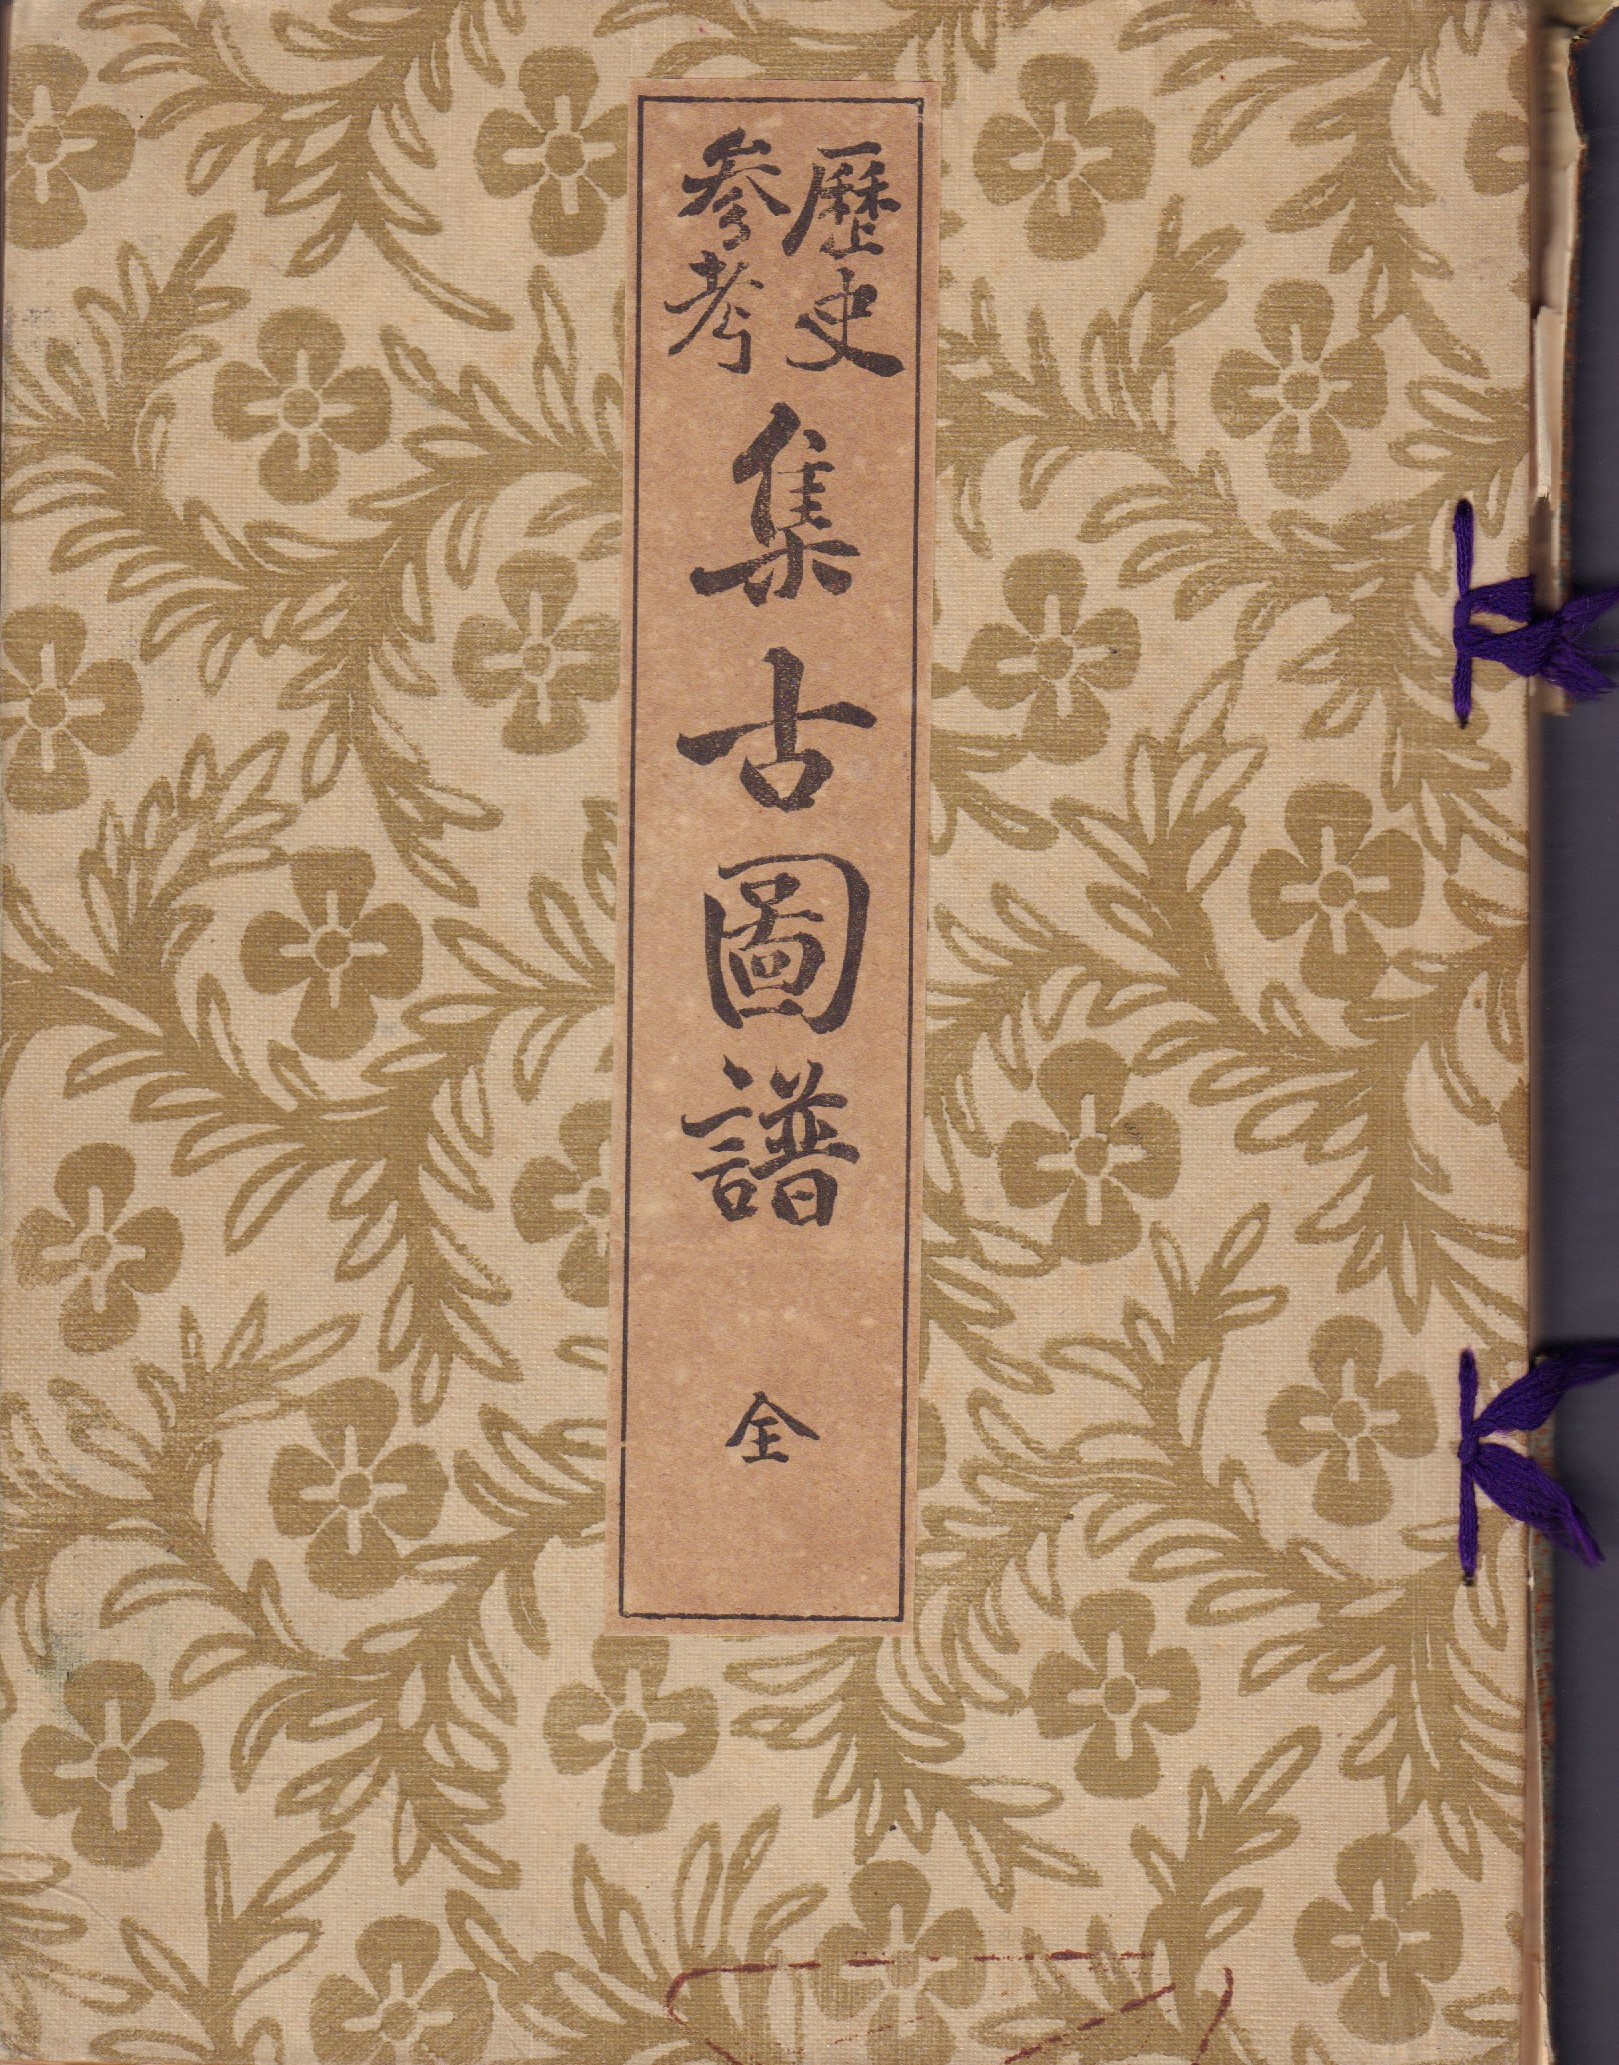 歷史
参考
集古圖譜
全